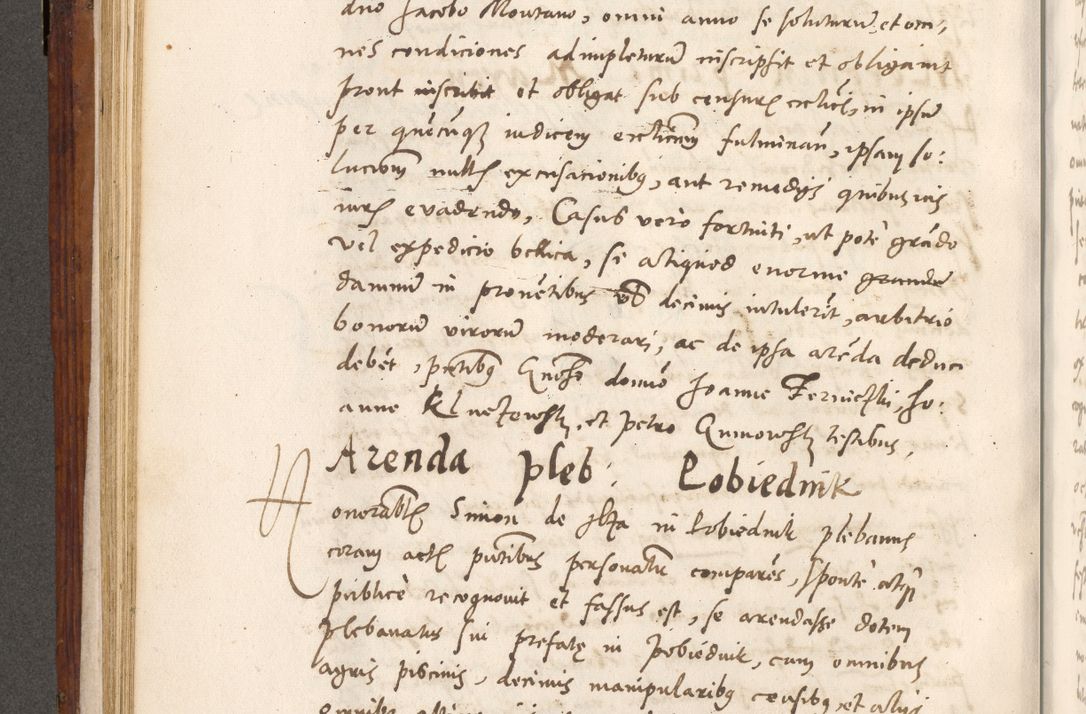 dno Jacobo Montano, omni anno se soluturū, et om,
nes condiciones adimpleturū inscripsit et obligavit
prout inscribit et obligat sub censuris ecclīcis, in ipsū
per quēcūq iudicem ecclicum fulminan̄, ipsam so:
lucionem nullis excusacionibq, aut remedijs quibusuis
iuris evadendo, Casus vero fortuiti, ut pote grādo
vel expedicio bellica, si aliquod enorme grande
damnū in provētibus decimis intulerit, arbitrio
bonorū virorū moderari, ac de ipsa arēda deduci
debēt, pntibq Gnoso domino Joanne Ferniczki, Jo:
anne et Petro testibus,
Arenda pleb: Pobiednik
Honorablis Simon de Ilza in Pobiednik plebanus
coram actis pntibus personaliter comparēs, sponte atq
publice recognovit et fassus est, se arendasse dotem
plebanatus sui prefatę in Pobiednik, cum omnibus
agris piscinis, decimis manipularibq censibq, et alijs